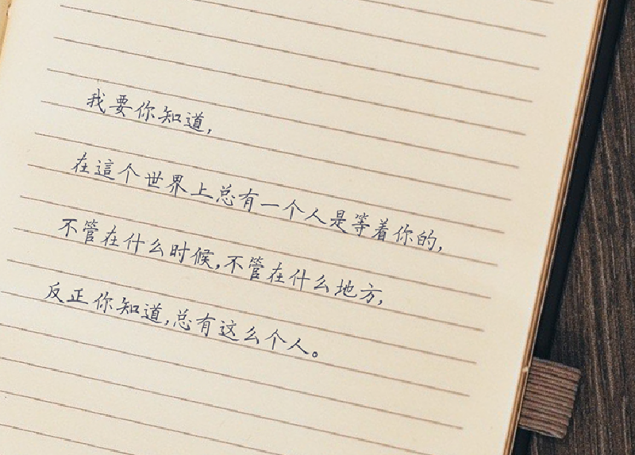 我要你知道,
在這个世界上总有一个人是等着你的,
不管在什么时候,不管在什么地方,
反正你知道,总有这么个人。